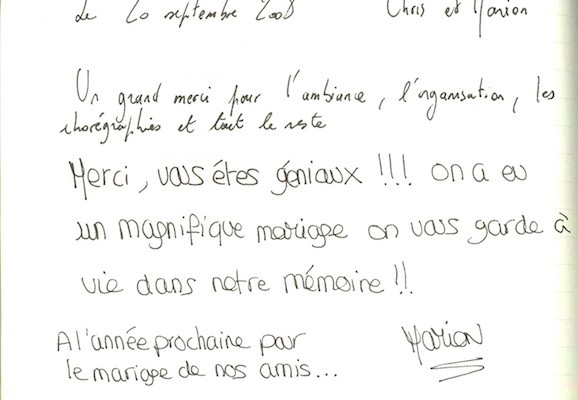 Le 20 septembre 2008 Chris et Marion
Un grand merci pour l'ambiance, l'organisation, les
chorégraphies et tout le reste
Merci, vous êtes géniaux !!! on a eu
un magnifique mariage on vous garde à
vie dans notre mémoire !!
A l'année prochaine pour
le mariage de nos amis...
Marion